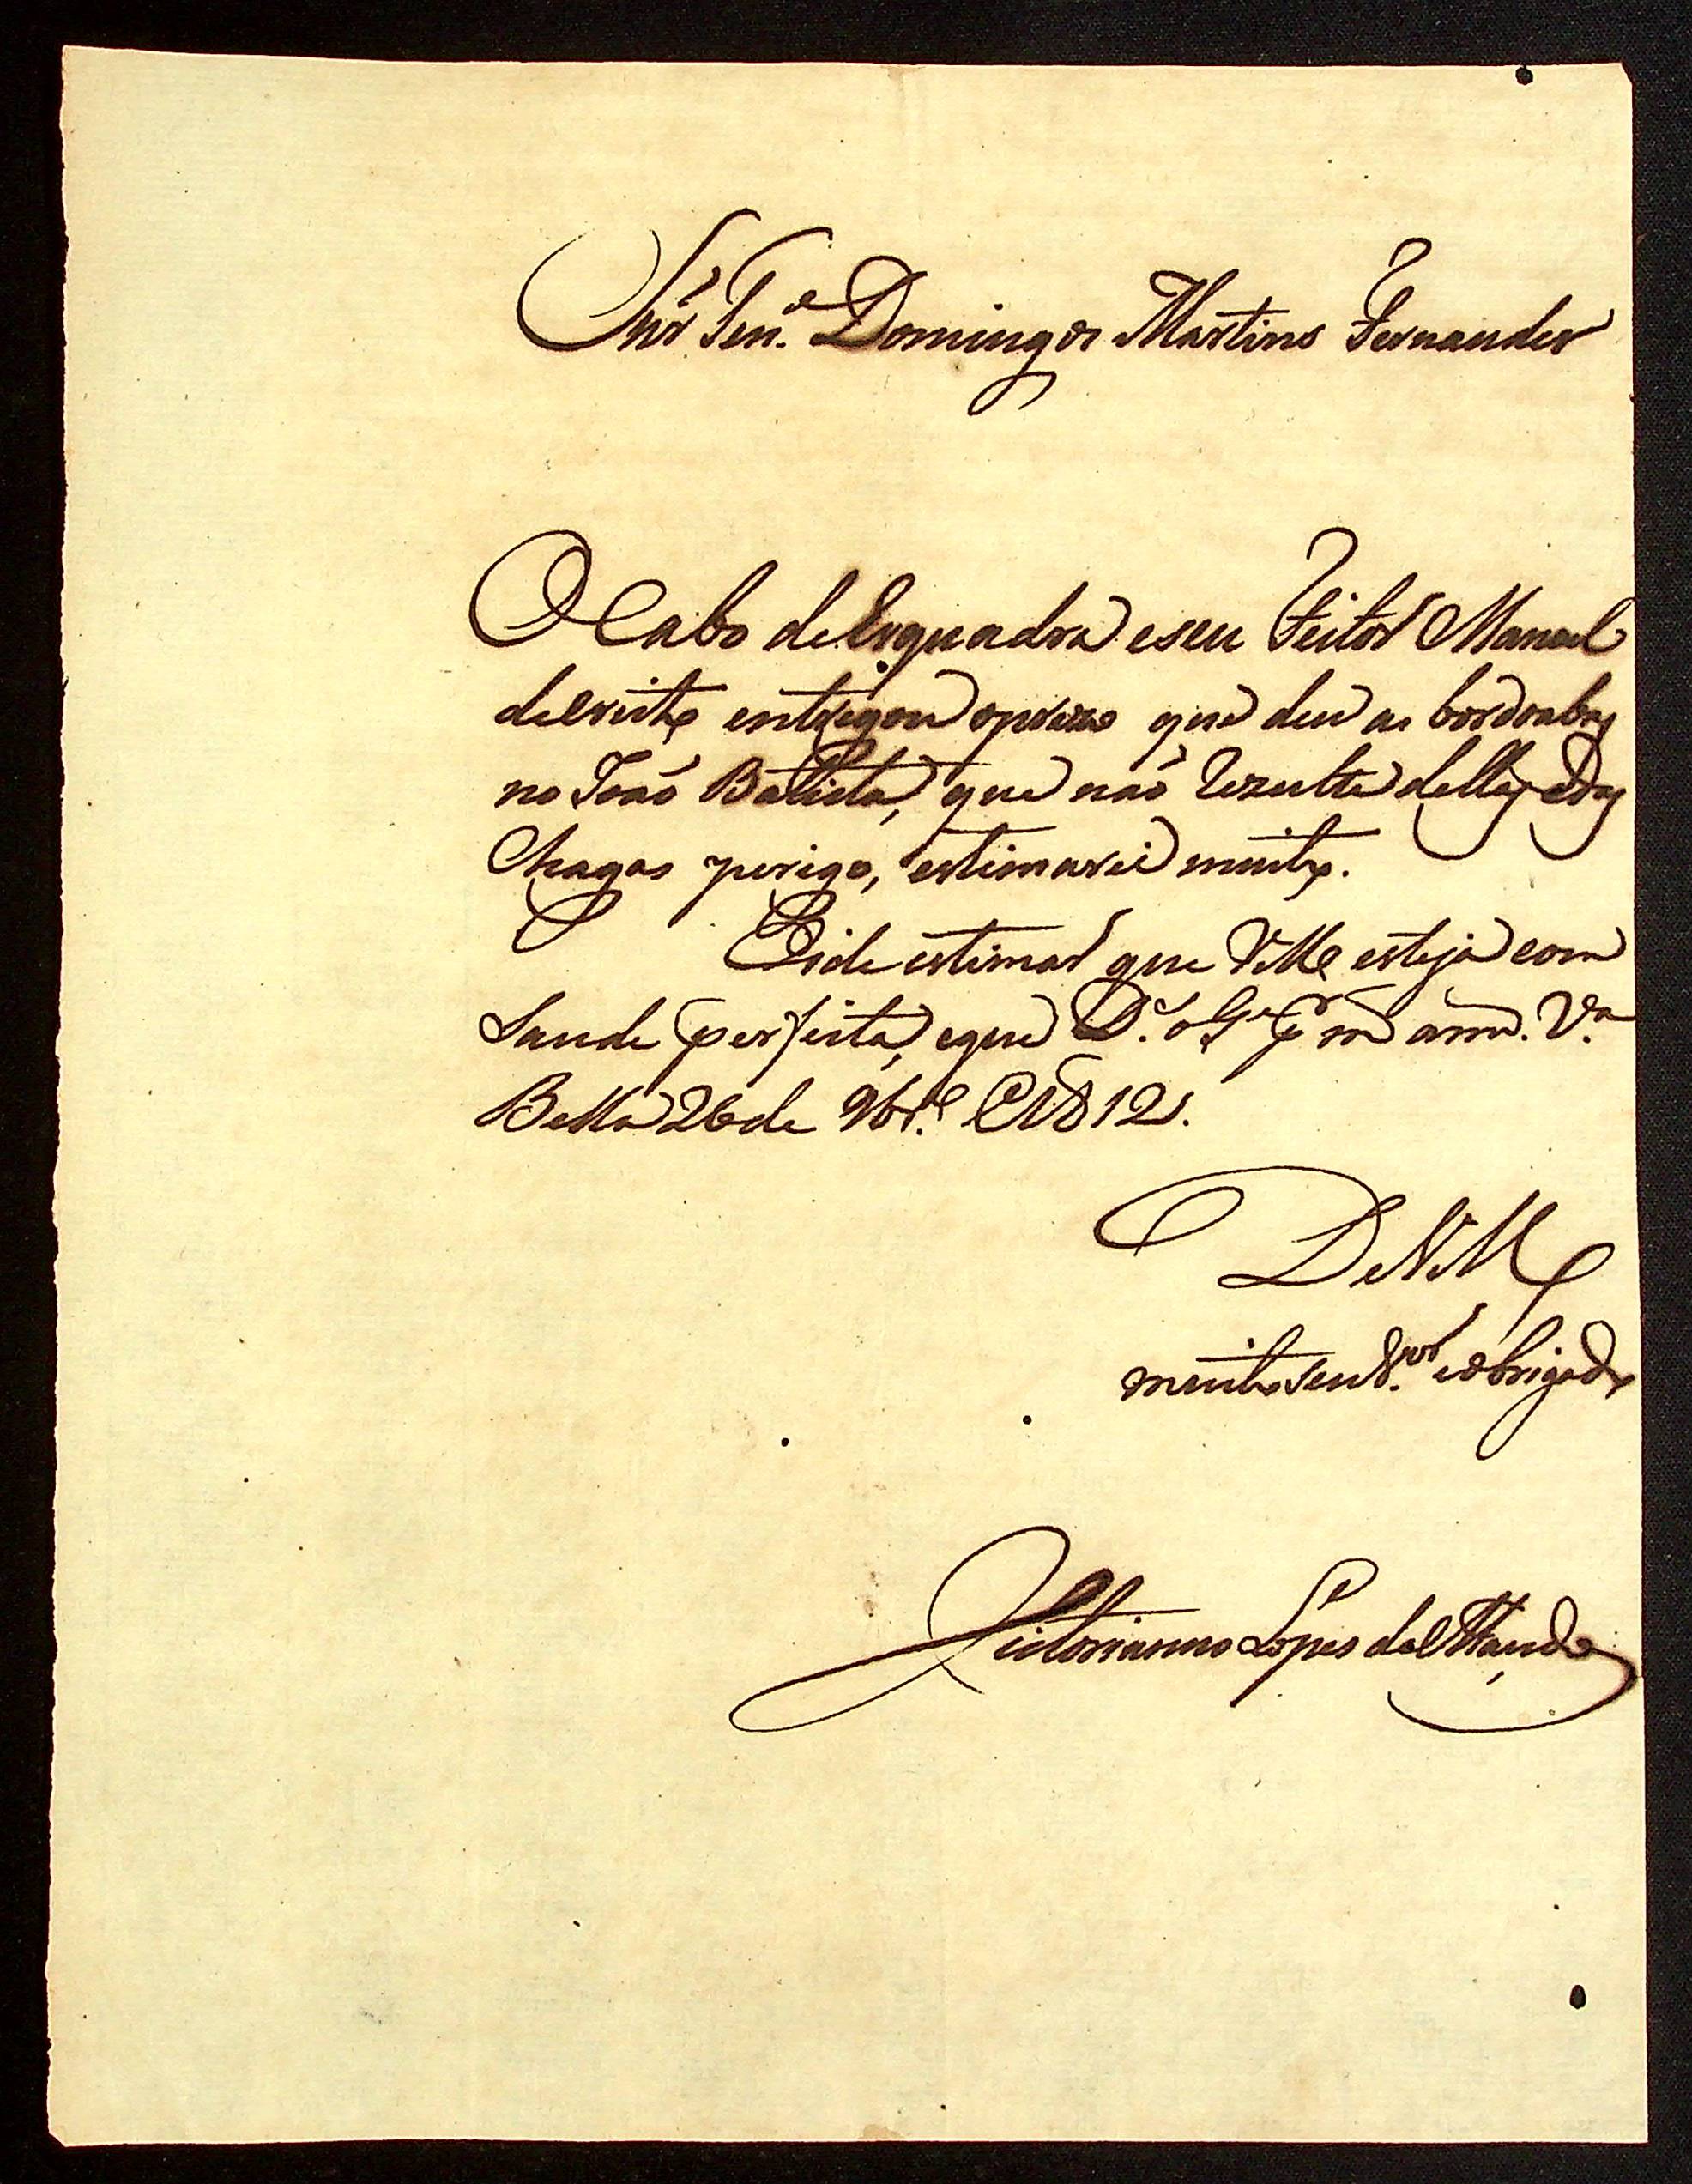 Snr̃ Ten.e Domingos Martins Fernandes
O Cabo de Esquadra e seu Feitor Manoel
de Brito entregou o prezo que deu as bordoabas
no João Batista, que não Rezulte dellas e das
Chagas perigo, estimarei muito.
Eide estimar que VMce esteja com
Saude perfeita, e que D.s o G.e p.r m. ann.s V.a
Bella 26 de 9br.o de 1812.
De VMce
muito ven.dor e obrigado
Victorianno Lopes de